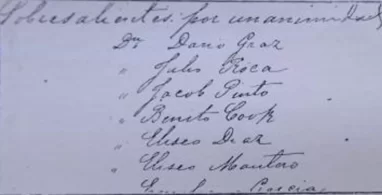 Sobresalientes por unanimidad
Dn Dario Graz
" Julio Roca
" Jacob Pinto
" Benito Cook
" Eliseo Diaz
" Eliseo Montero
" García